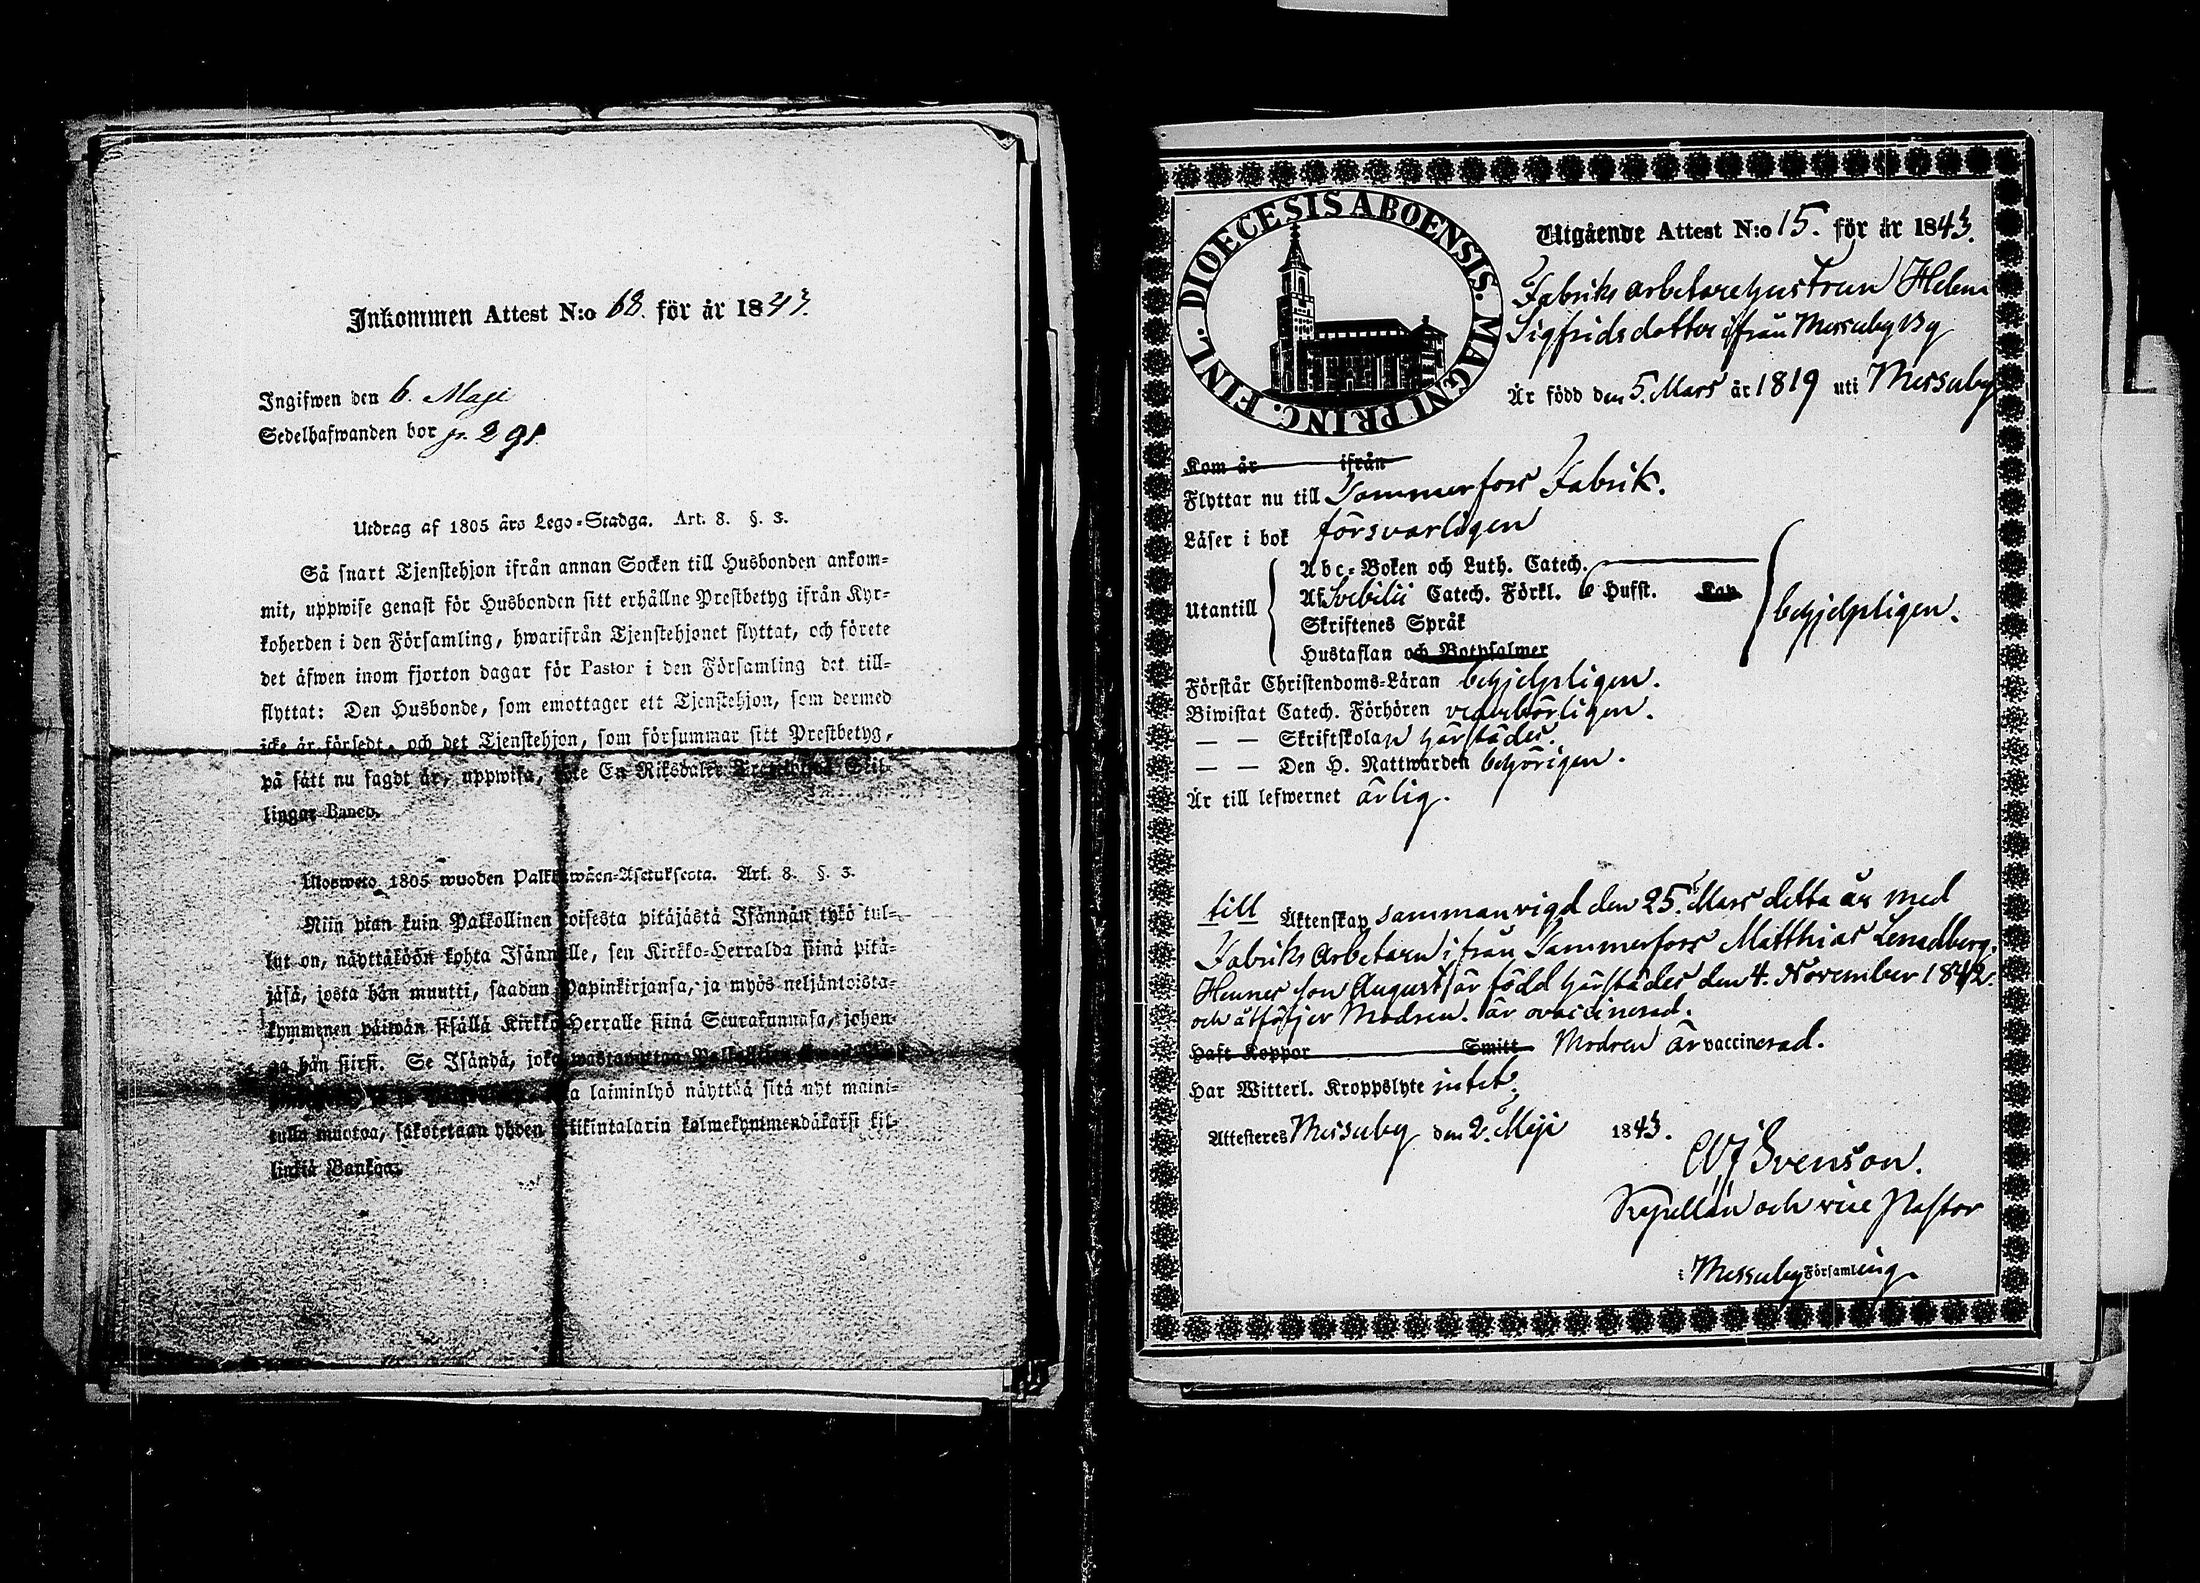 Inkommen Attest N:o 68. för år 1843.
Ingifwen den 6. Maji
Sedelhafwanden bor p. 291
Utdrag af 1805 års Lego-Stadga. Art. 8. §. 3.
Så snart Tjenstehjon ifrån annan Socken till Husbonden ankom-
mit, uppwise genast för Husbonden sitt erhållne Prestbetyg ifrån Kyr-
koherden i den Församling, hwarifrån Tjenstehjonet flyttat, och förete
det äfwen inom fjorton dagar för Pastor i den Församling det till-
flyttat: Den Husbonde, som emottager ett Tjenstehjon, som dermed
icke är försedt, och det Tjenstehjon, som försummar sitt Prestbetyg,
på sätt nu sagdt är, uppwisa, böte En Riksdaler Skil-
lingar Banco.
Ulosweto 1805 wuoden Palkkawäen-Asetuksesta. Art. 8. §. 3.
Niin pian kuin Palkollinen toisesta pitäjästä Isännän tykö tul-
lut on, näyttäköön kohta Isännälle, sen Kirkko-Herralda siinä pitä-
jäsä, josta hän muutti, saadun Papinkirjansa, ja myös neljäntoista-
kymmenen päiwän sisällä Kirkko-Herralle siinä Seurakunnasa, johon-
ga hän siirsi. Se Isändä, joka wastanottaa Palkollisen
laiminlyö näyttää sitä nyt maini-
tulla muotoa, sakotetaan yhden Riikintalarin kolmekymmendäkaksi kil-
linkiä Bankoa.
DIOECESIS ABOENSIS. MAGNI PRINC. FINL.
Utgående Attest N:o 15. för år 1843.
Fabriks arbetare hustrun Helena
Sigfridsdotter ifrån Messuby By
Är född den 5. Mars år 1819 uti Messuby
Kom år ifrån
Flyttar nu till Tammerfors Fabrik.
Läser i bok försvarligen
Utantill
Abc-Boken och Luth. Catech.
Af Svebilii Catech. Förkl. 6 Hufst. Kap
Skriftenes Språk
Hustaflan och Botpsalmer
behjelpligen.
Förstår Christendoms-Läran behjelpligen.
Biwistat Catech. Förhören vederbörligen.
— — Skriftskolan härstädes.
— — Den H. Nattwarden behörigen.
Är till lefwernet ärlig.
till Äktenskap sammanvigd den 25. Mars detta år med
Fabriks Arbetaren ifrån Tammerfors Matthias
Hennes son August är född härstädes den 4. November 1842.
och åtföljer Modren. är ovaccinerad.
Haft Koppor Smitt Modren är vaccinerad.
Har Witterl. Kroppslyte intet.
Attesteres Messuby den 2. Maji 1843.
Svenson.
Kapellan och vice Pastor
i Messuby Församling.